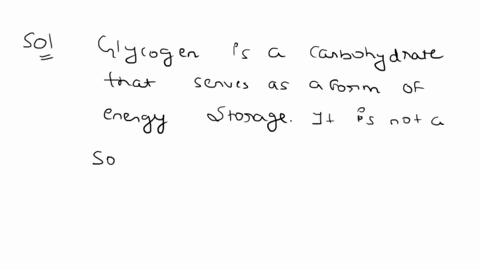 Sol Glycogen is a carbohydrate
that serves as a form of
energy storage. It is not a
so